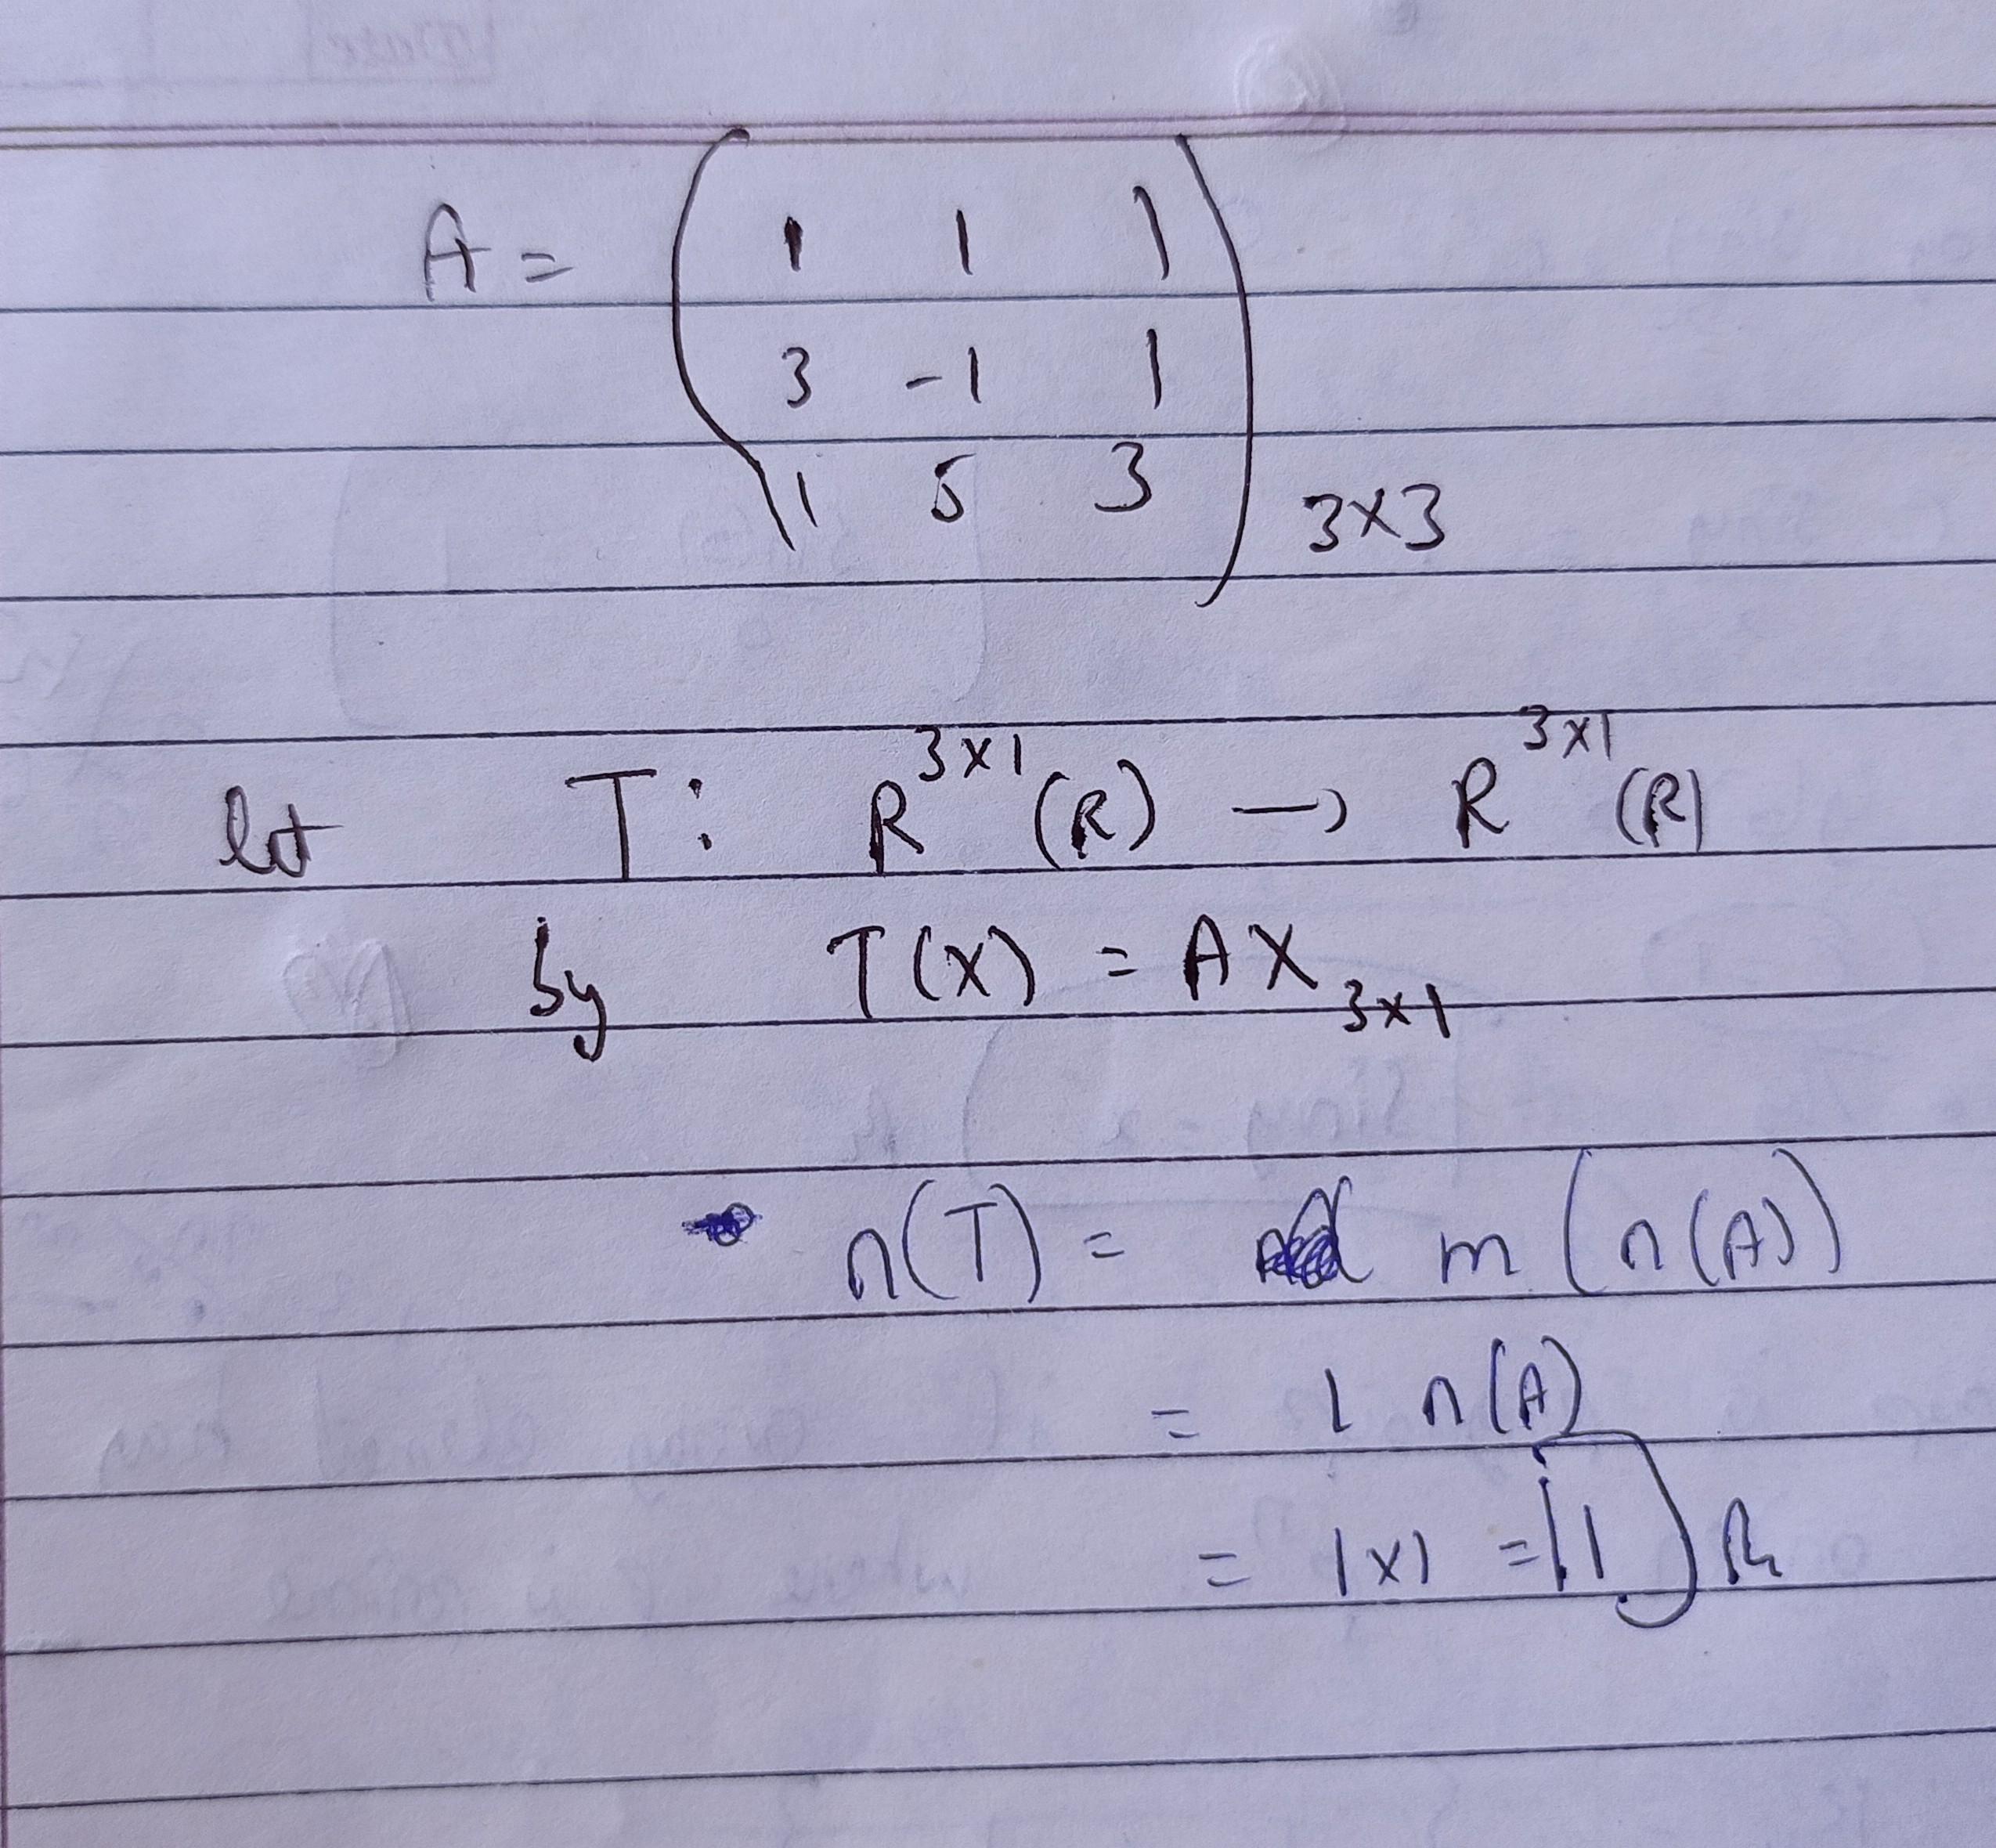 A = ( 1 1 1
3 -1 1
1 5 3 ) 3×3
let T: R^{3×1} (R) → R^{3×1} (R)
by T(X) = AX_{3×1}
n(T) = m (n(A))
= 1 n(A)
= 1×1 = 1